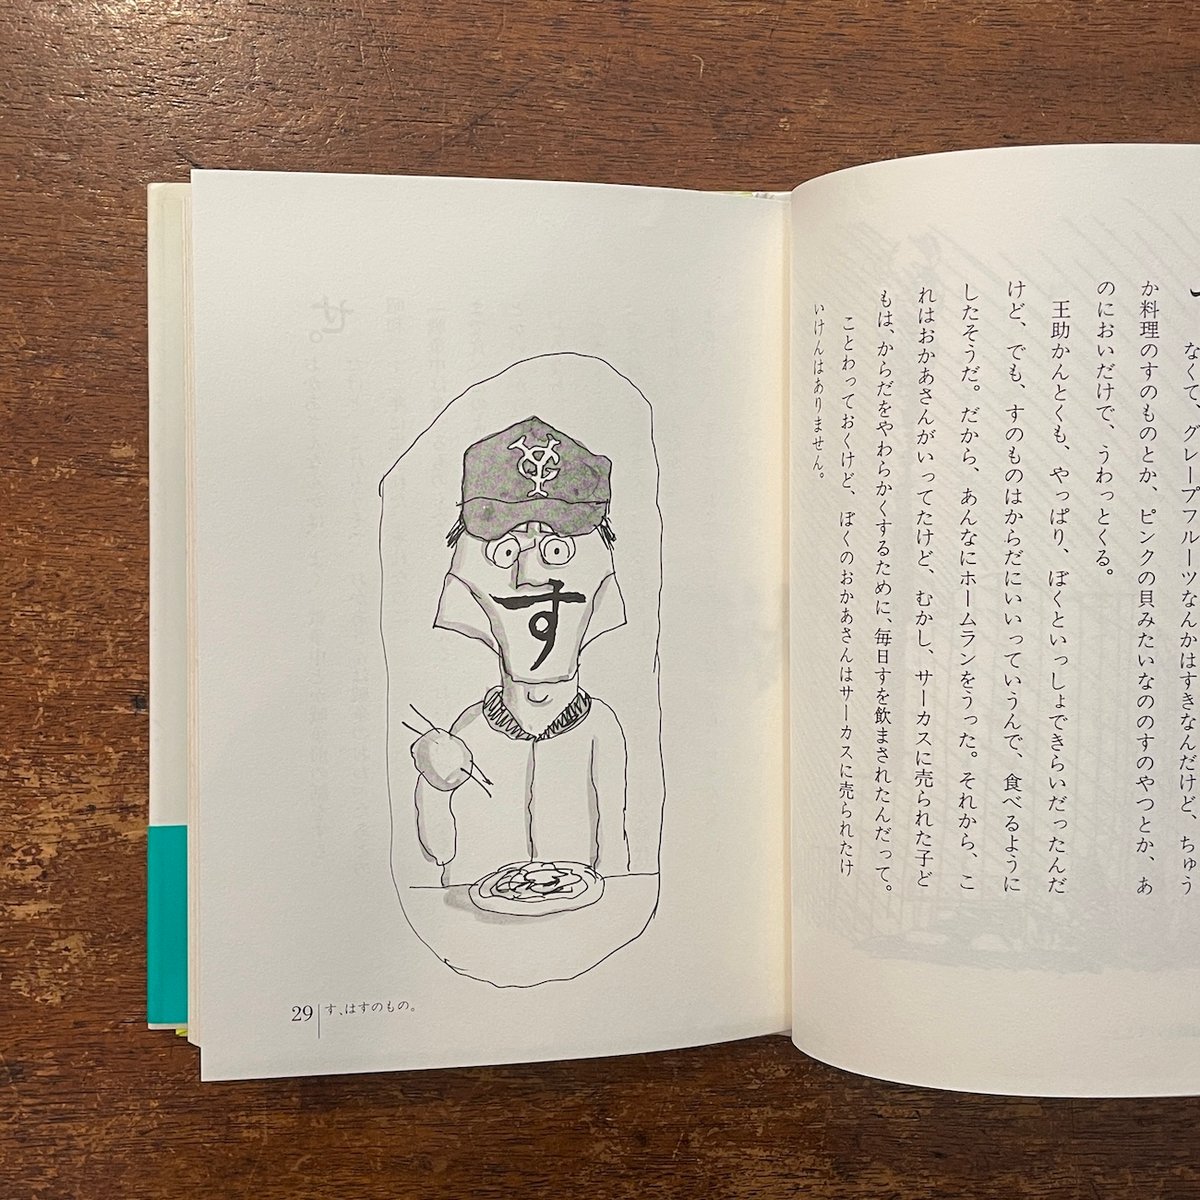 なくて、グレープフルーツなんかはすきなんだけど、ちゅう
か料理のすのものとか、ピンクの貝みたいなののすのやつとか、あ
のにおいだけで、うわっとくる。
王助かんとくも、やっぱり、ぼくといっしょできらいだったんだ
けど、でも、すのものはからだにいいっていうんで、食べるように
したそうだ。だから、あんなにホームランをうった。それから、こ
れはおかあさんがいってたけど、むかし、サーカスに売られた子ど
もは、からだをやわらかくするために、毎日すを飲まされたんだって。
ことわっておくけど、ぼくのおかあさんはサーカスに売られたけ
いけんはありません。
YG
す
29
す、はすのもの。
せ。